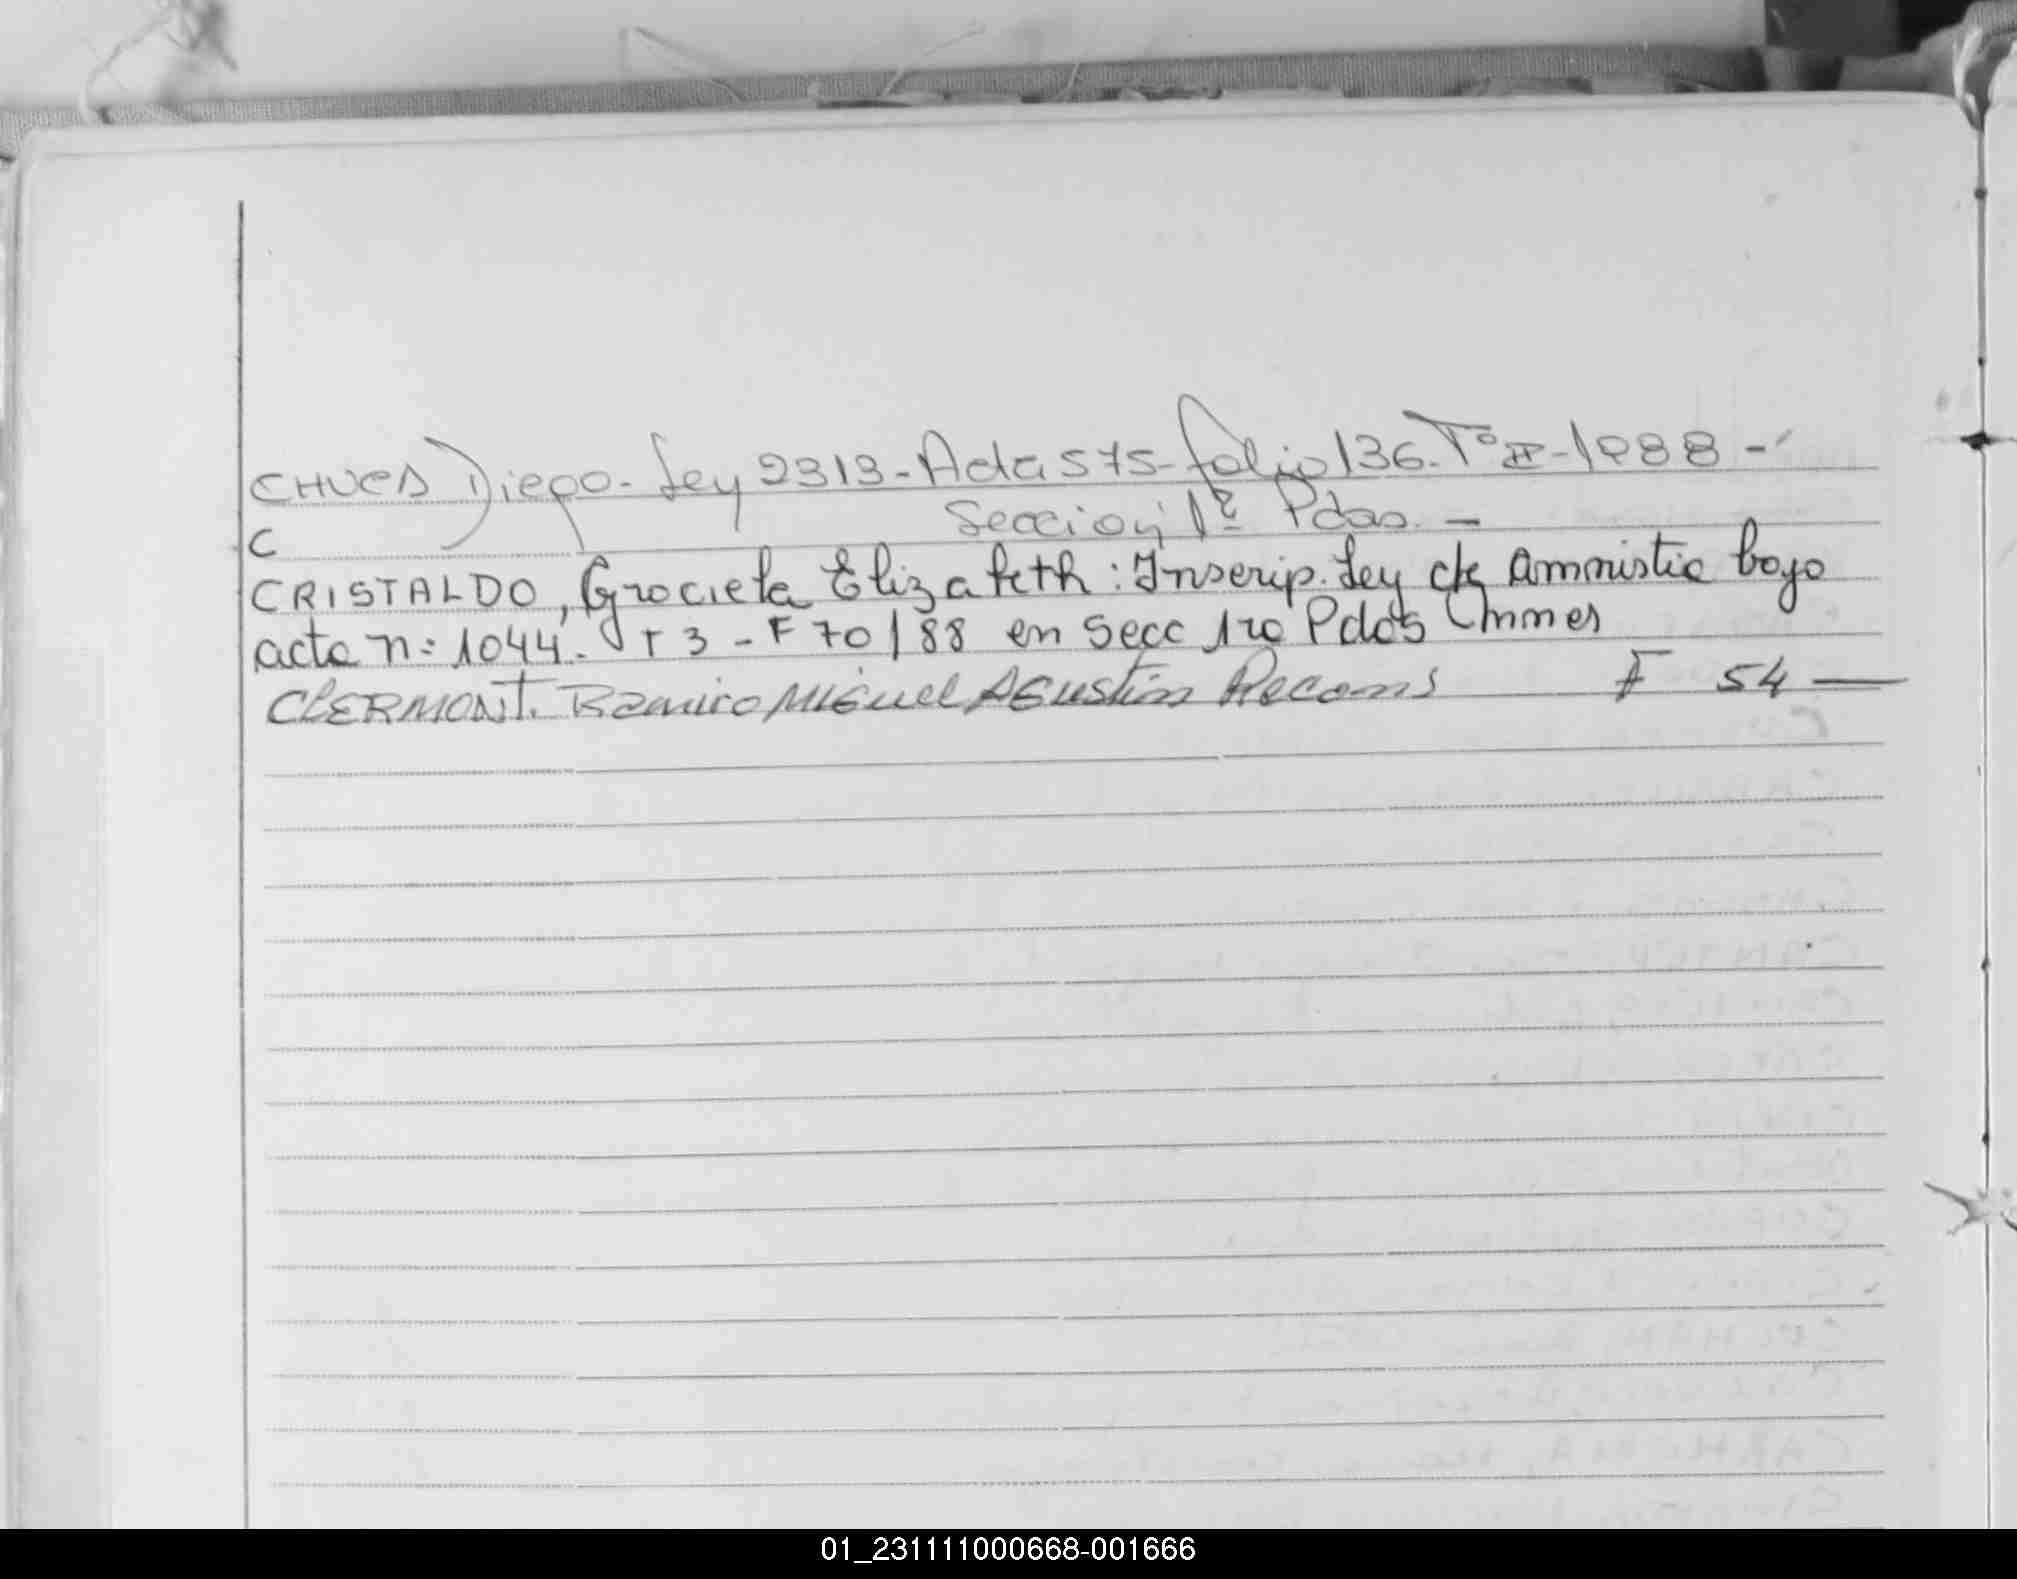 CHVES Diego - Ley 2313 - Acta 575 - folio 136 - Tº II - 1988 -
Sección 1ª Pdas. -
C
CRISTALDO, Graciela Elizabeth : Inscrip. Ley de Amnistia bajo
acta n: 1044 - T 3 - F 70/88 en Secc 1ra Pdas
CLERMONT. Ramiro Miguel Agustin Recons F 54 —
01_231111000668-001666